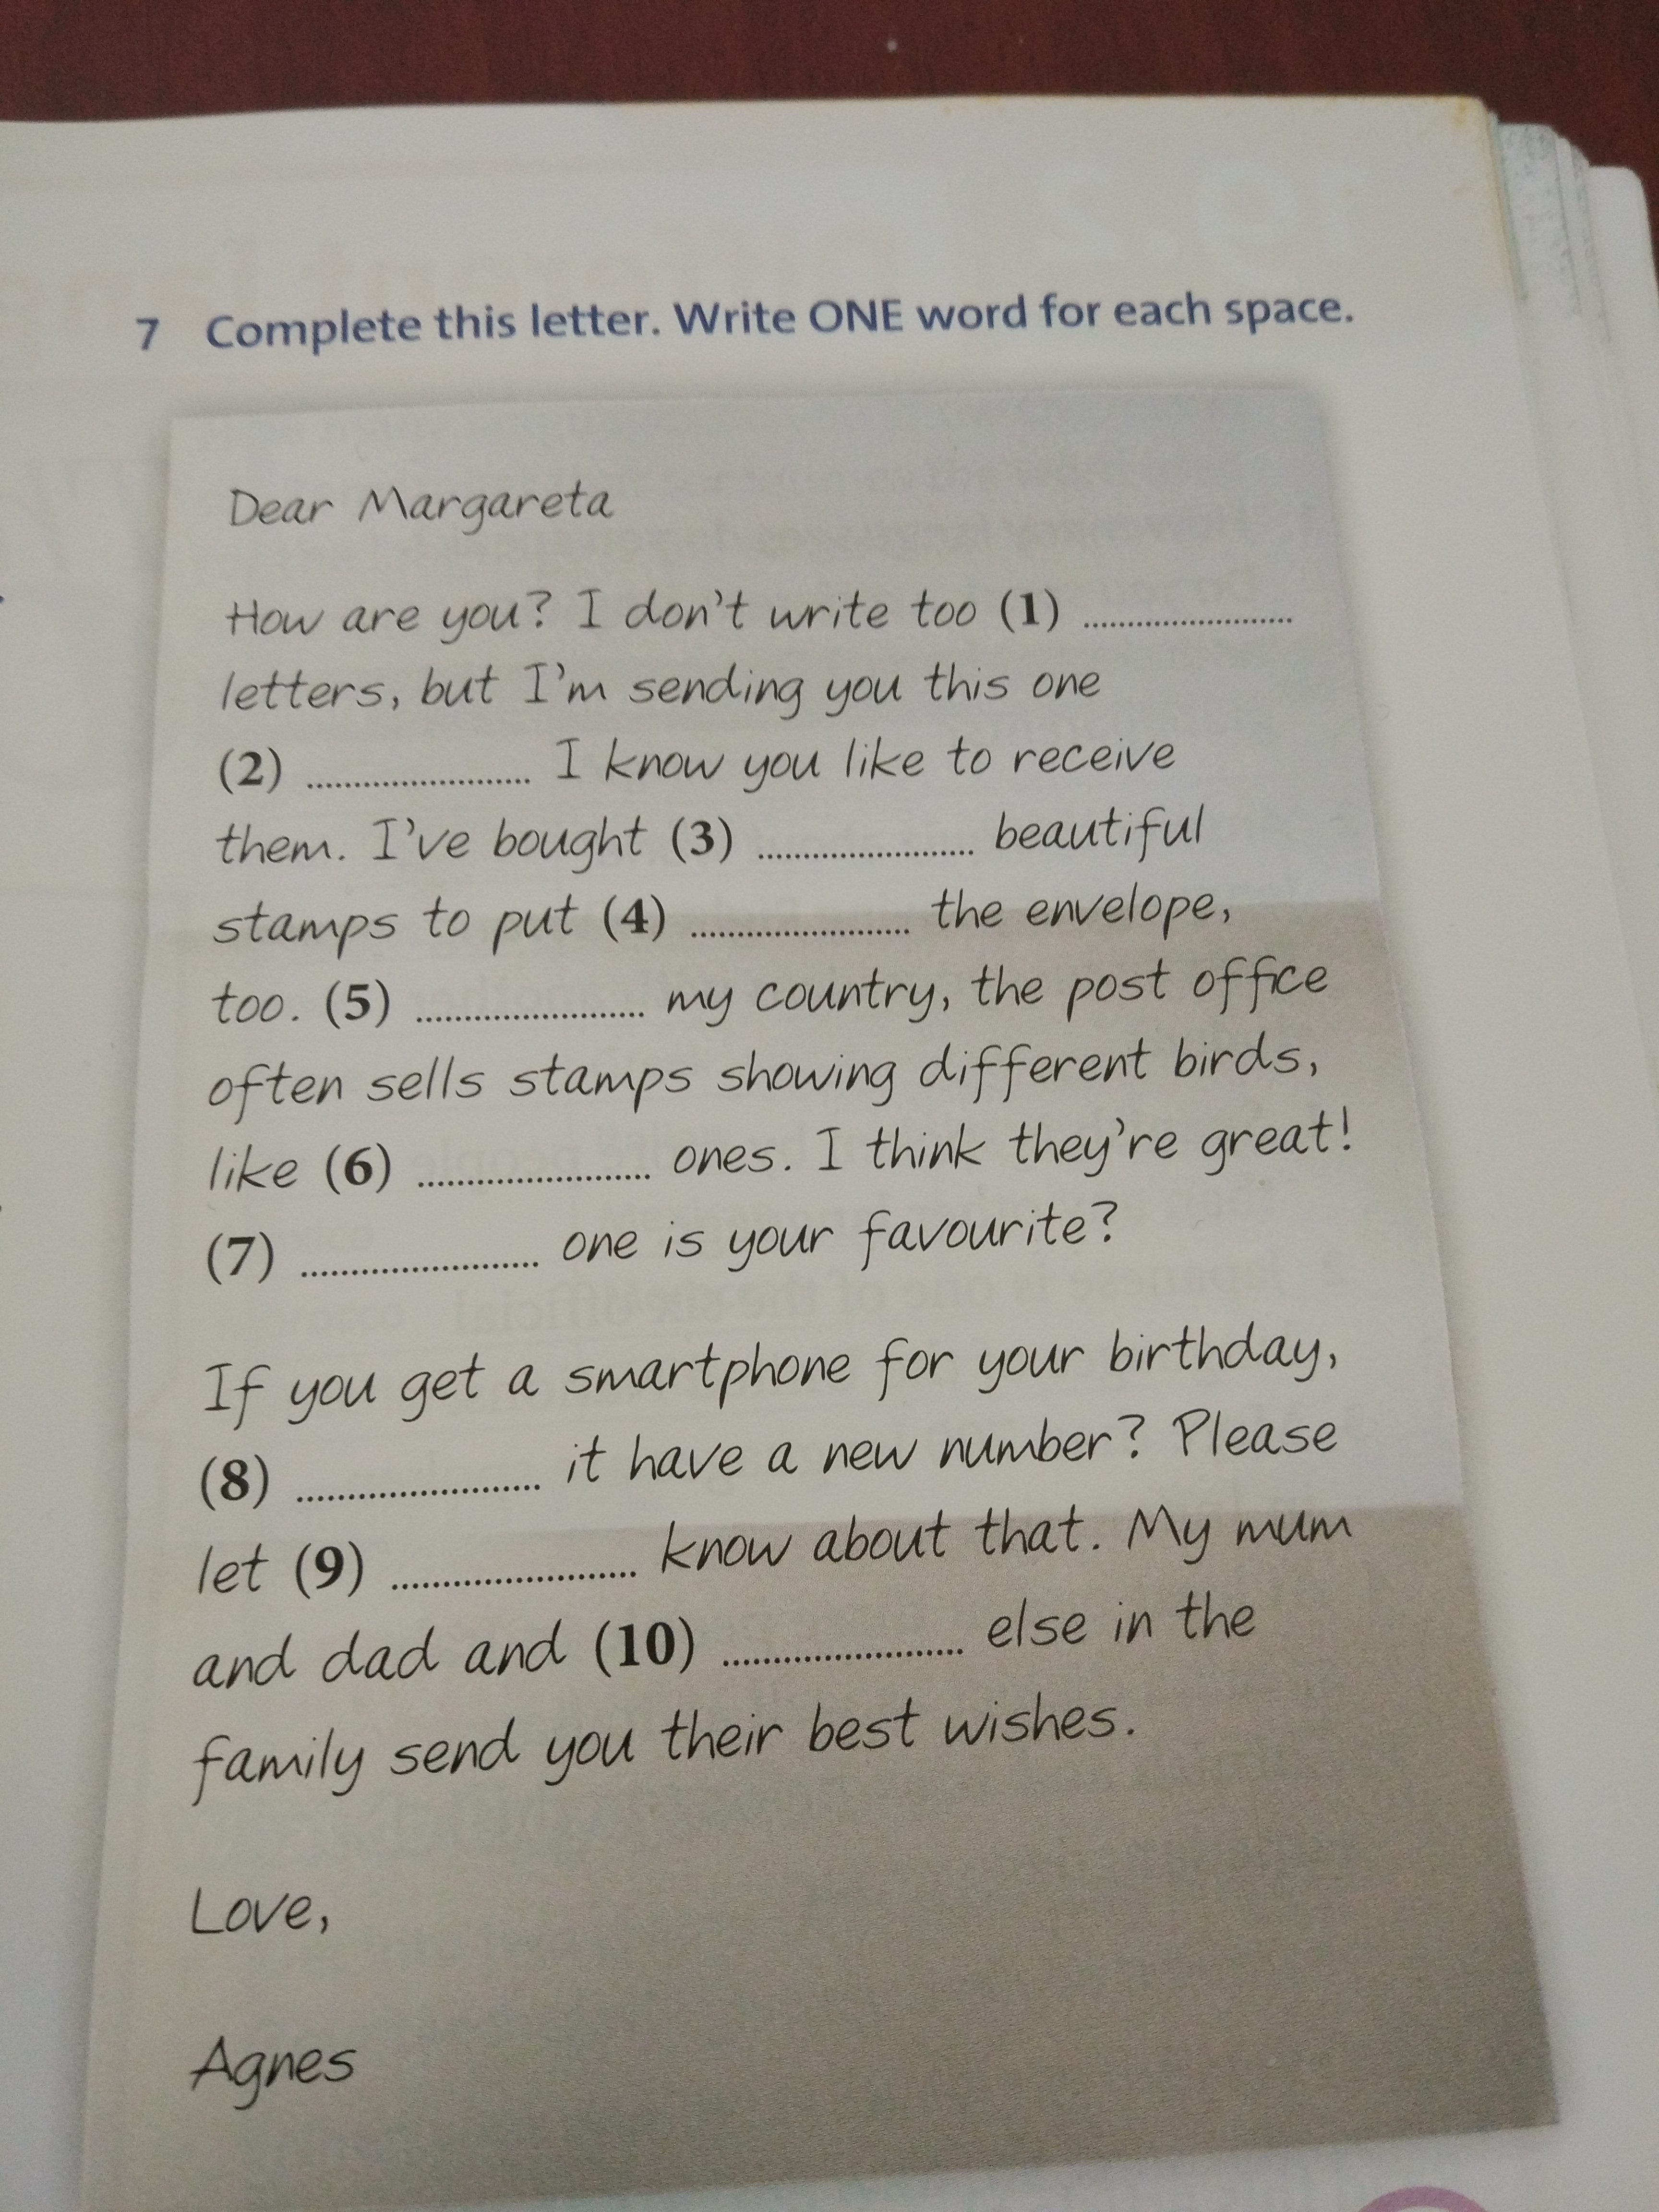 7 Complete this letter. Write ONE word for each space.
Dear Margareta
How are you? I don't write too (1) ........................
letters, but I'm sending you this one
(2) ........................ I know you like to receive
them. I've bought (3) ........................ beautiful
stamps to put (4) ........................ the envelope,
too. (5) ........................ my country, the post office
often sells stamps showing different birds,
like (6) ........................ ones. I think they're great!
(7) ........................ one is your favourite?
If you get a smartphone for your birthday,
(8) ........................ it have a new number? Please
let (9) ........................ know about that. My mum
and dad and (10) ........................ else in the
family send you their best wishes.
Love,
Agnes